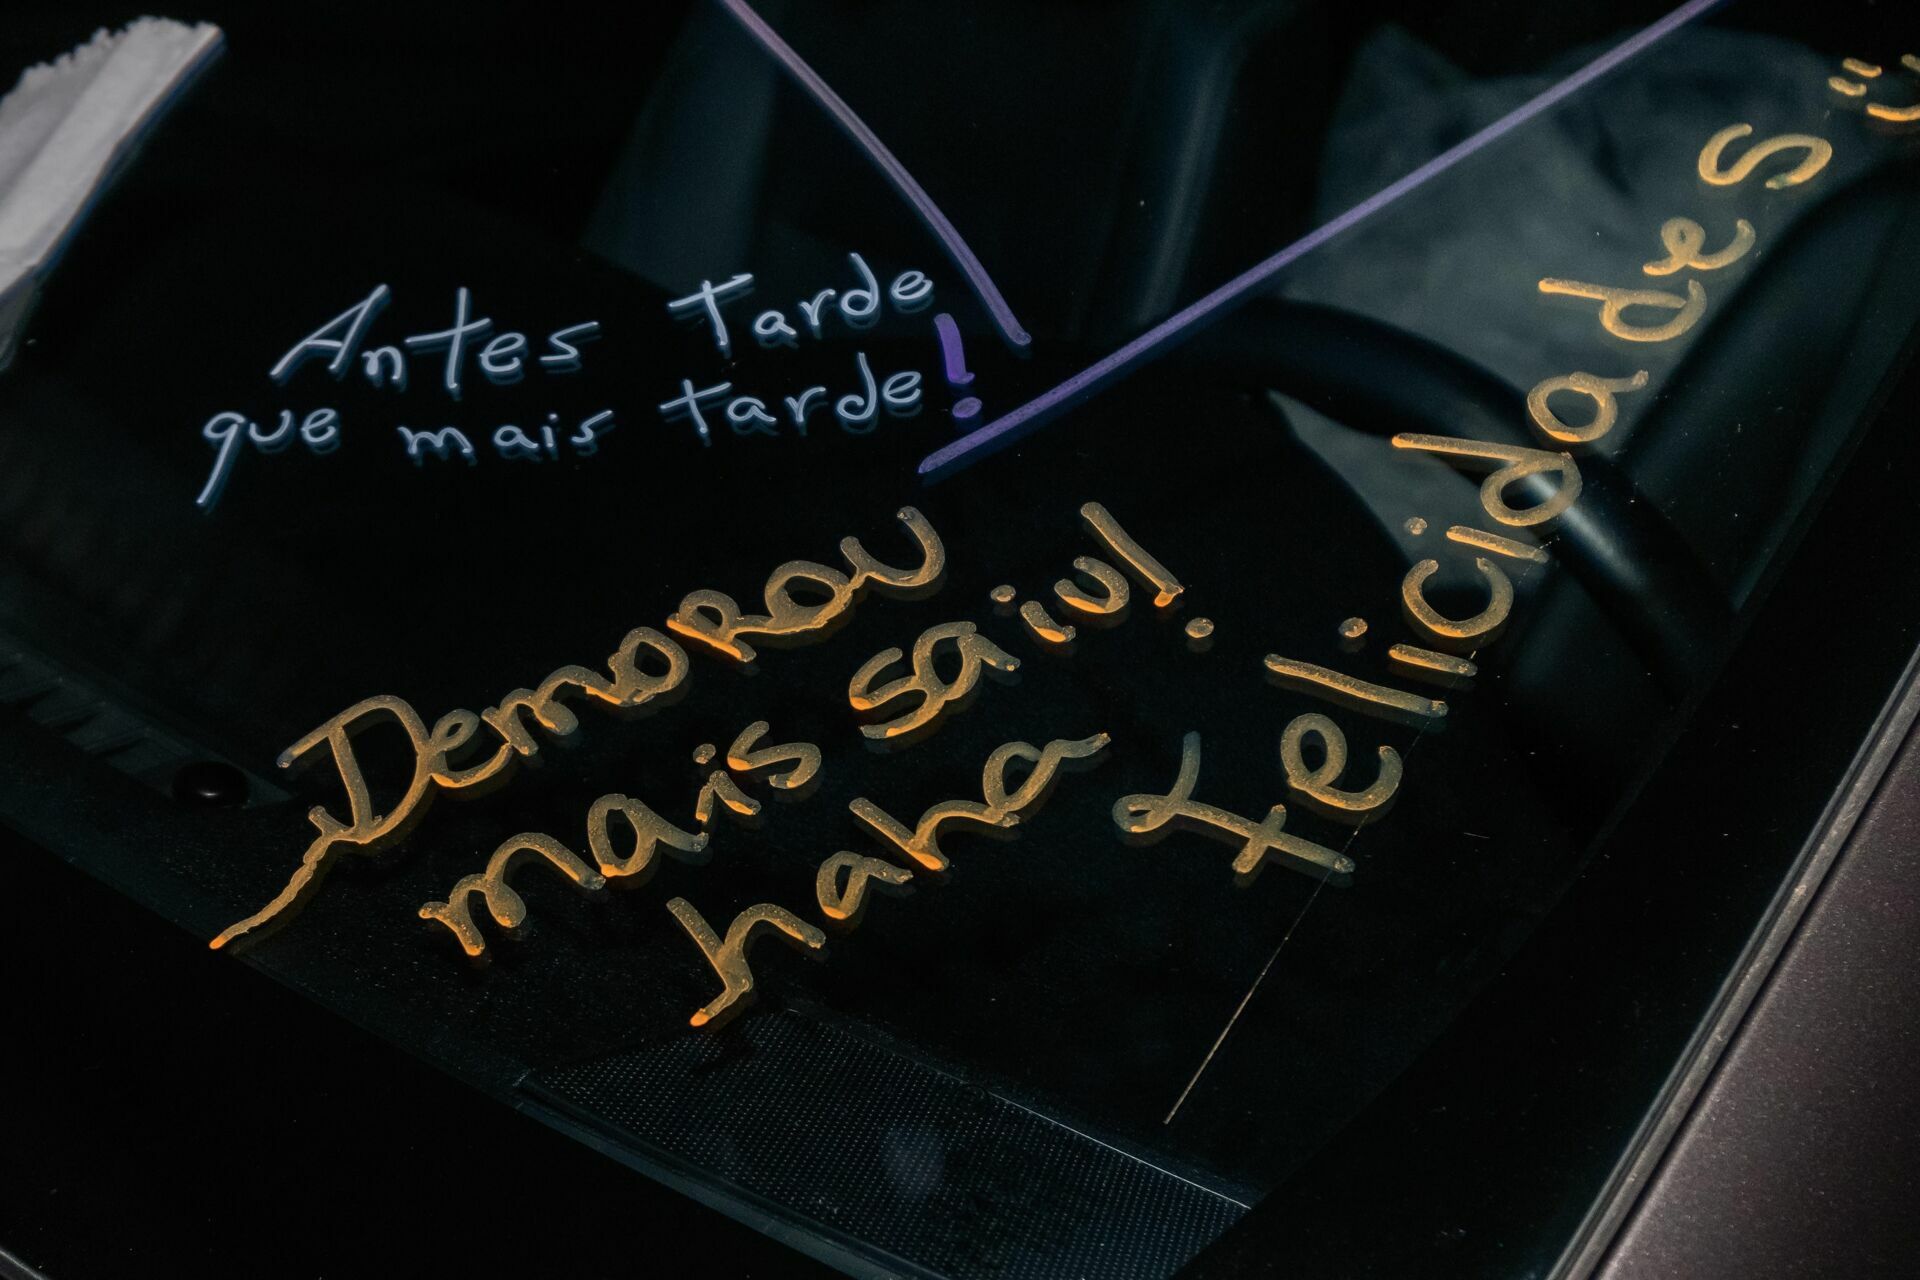 Antes Tarde
que mais tarde!
Demorou
mais saiu!
haha
felicidades